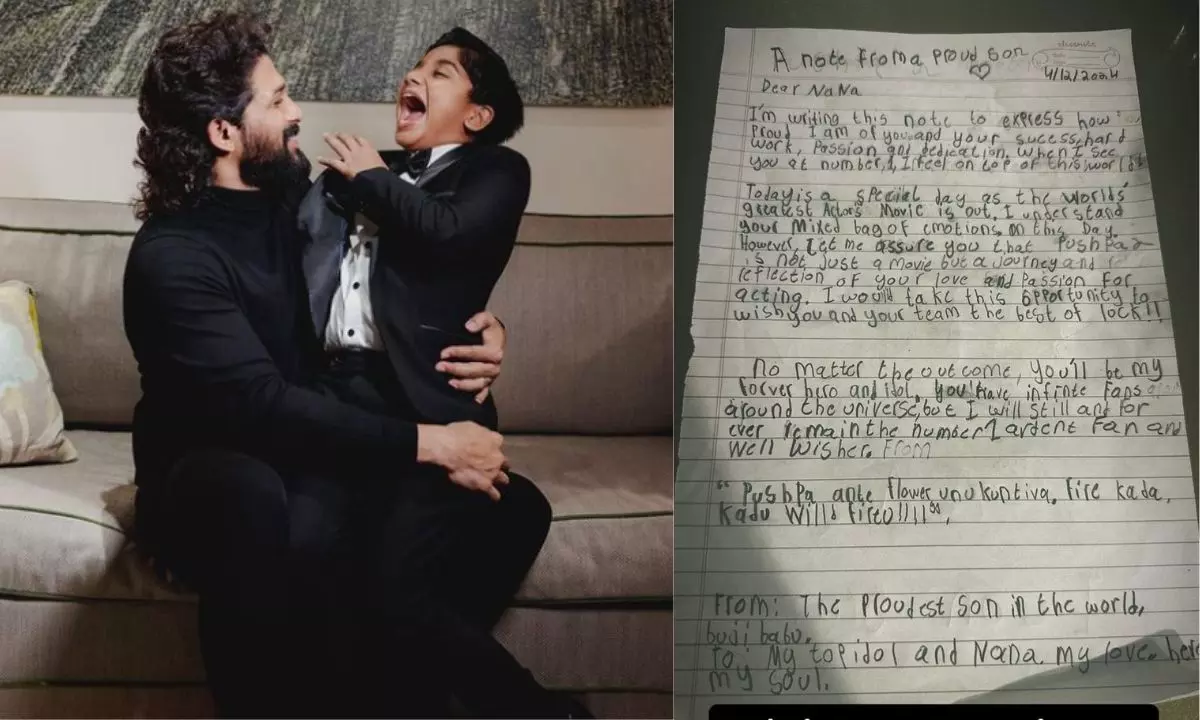 A note From a proud son
4/12/2024
Dear NaNa
I'm writing this note to express how
proud I am of you and your sucess, hard
work, Passion and dedication. when I see
you at number 1, I feel on top of this world
Today is a special day as the worlds'
greatest Actors Movie is out. I understand
your Mixed bag of emotions on this Day.
However, let me assure you that Pushpa2
is not just a movie but a journey and
reflection of your love and Passion for
acting. I would take this opportunity to
wish you and your team the best of lock!!
No matter the outcome, you'll be my
forver hero and idol. you have infinte Fans
around the universe, but I will still and for
ever remain the number 1 ardent Fan and
Well Wisher. From
" Pushpa ante flower unukuntiva. Fire kada,
Kadu Willd fireu!!!!",
From: The Proudest son in the world,
buji babu.
To: My top idol and Nana. my love. hero
my soul.